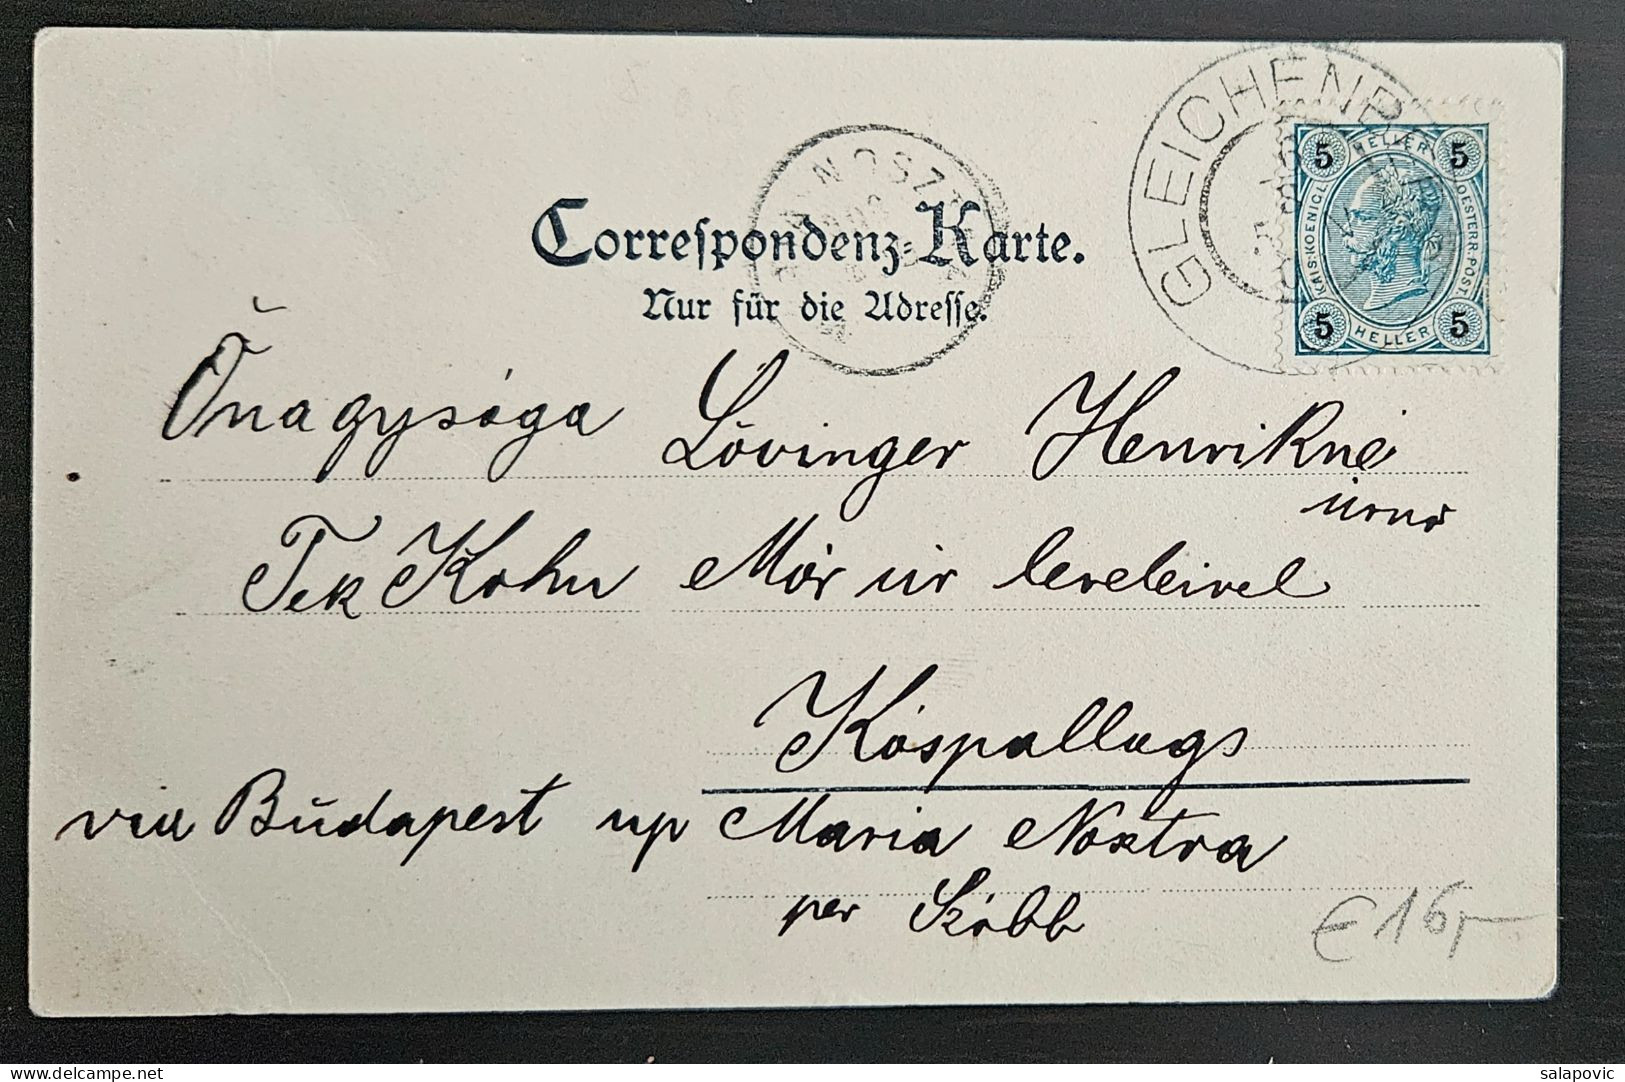 GLEICHENB
5 HELLER 5
KAIS·KOENIGL. OESTERR·POST.
5 HELLER 5
NOSZ
Correspondenz-Karte.
Nur für die Adresse.
Őnagysága Lövinger Henrikné
úrnő
Tek Kohn Mór úr becsleivel
Kóspallags
via Budapest up Maria Nostra
per Szobb
€ 16,-
delcampe.net
salapovic